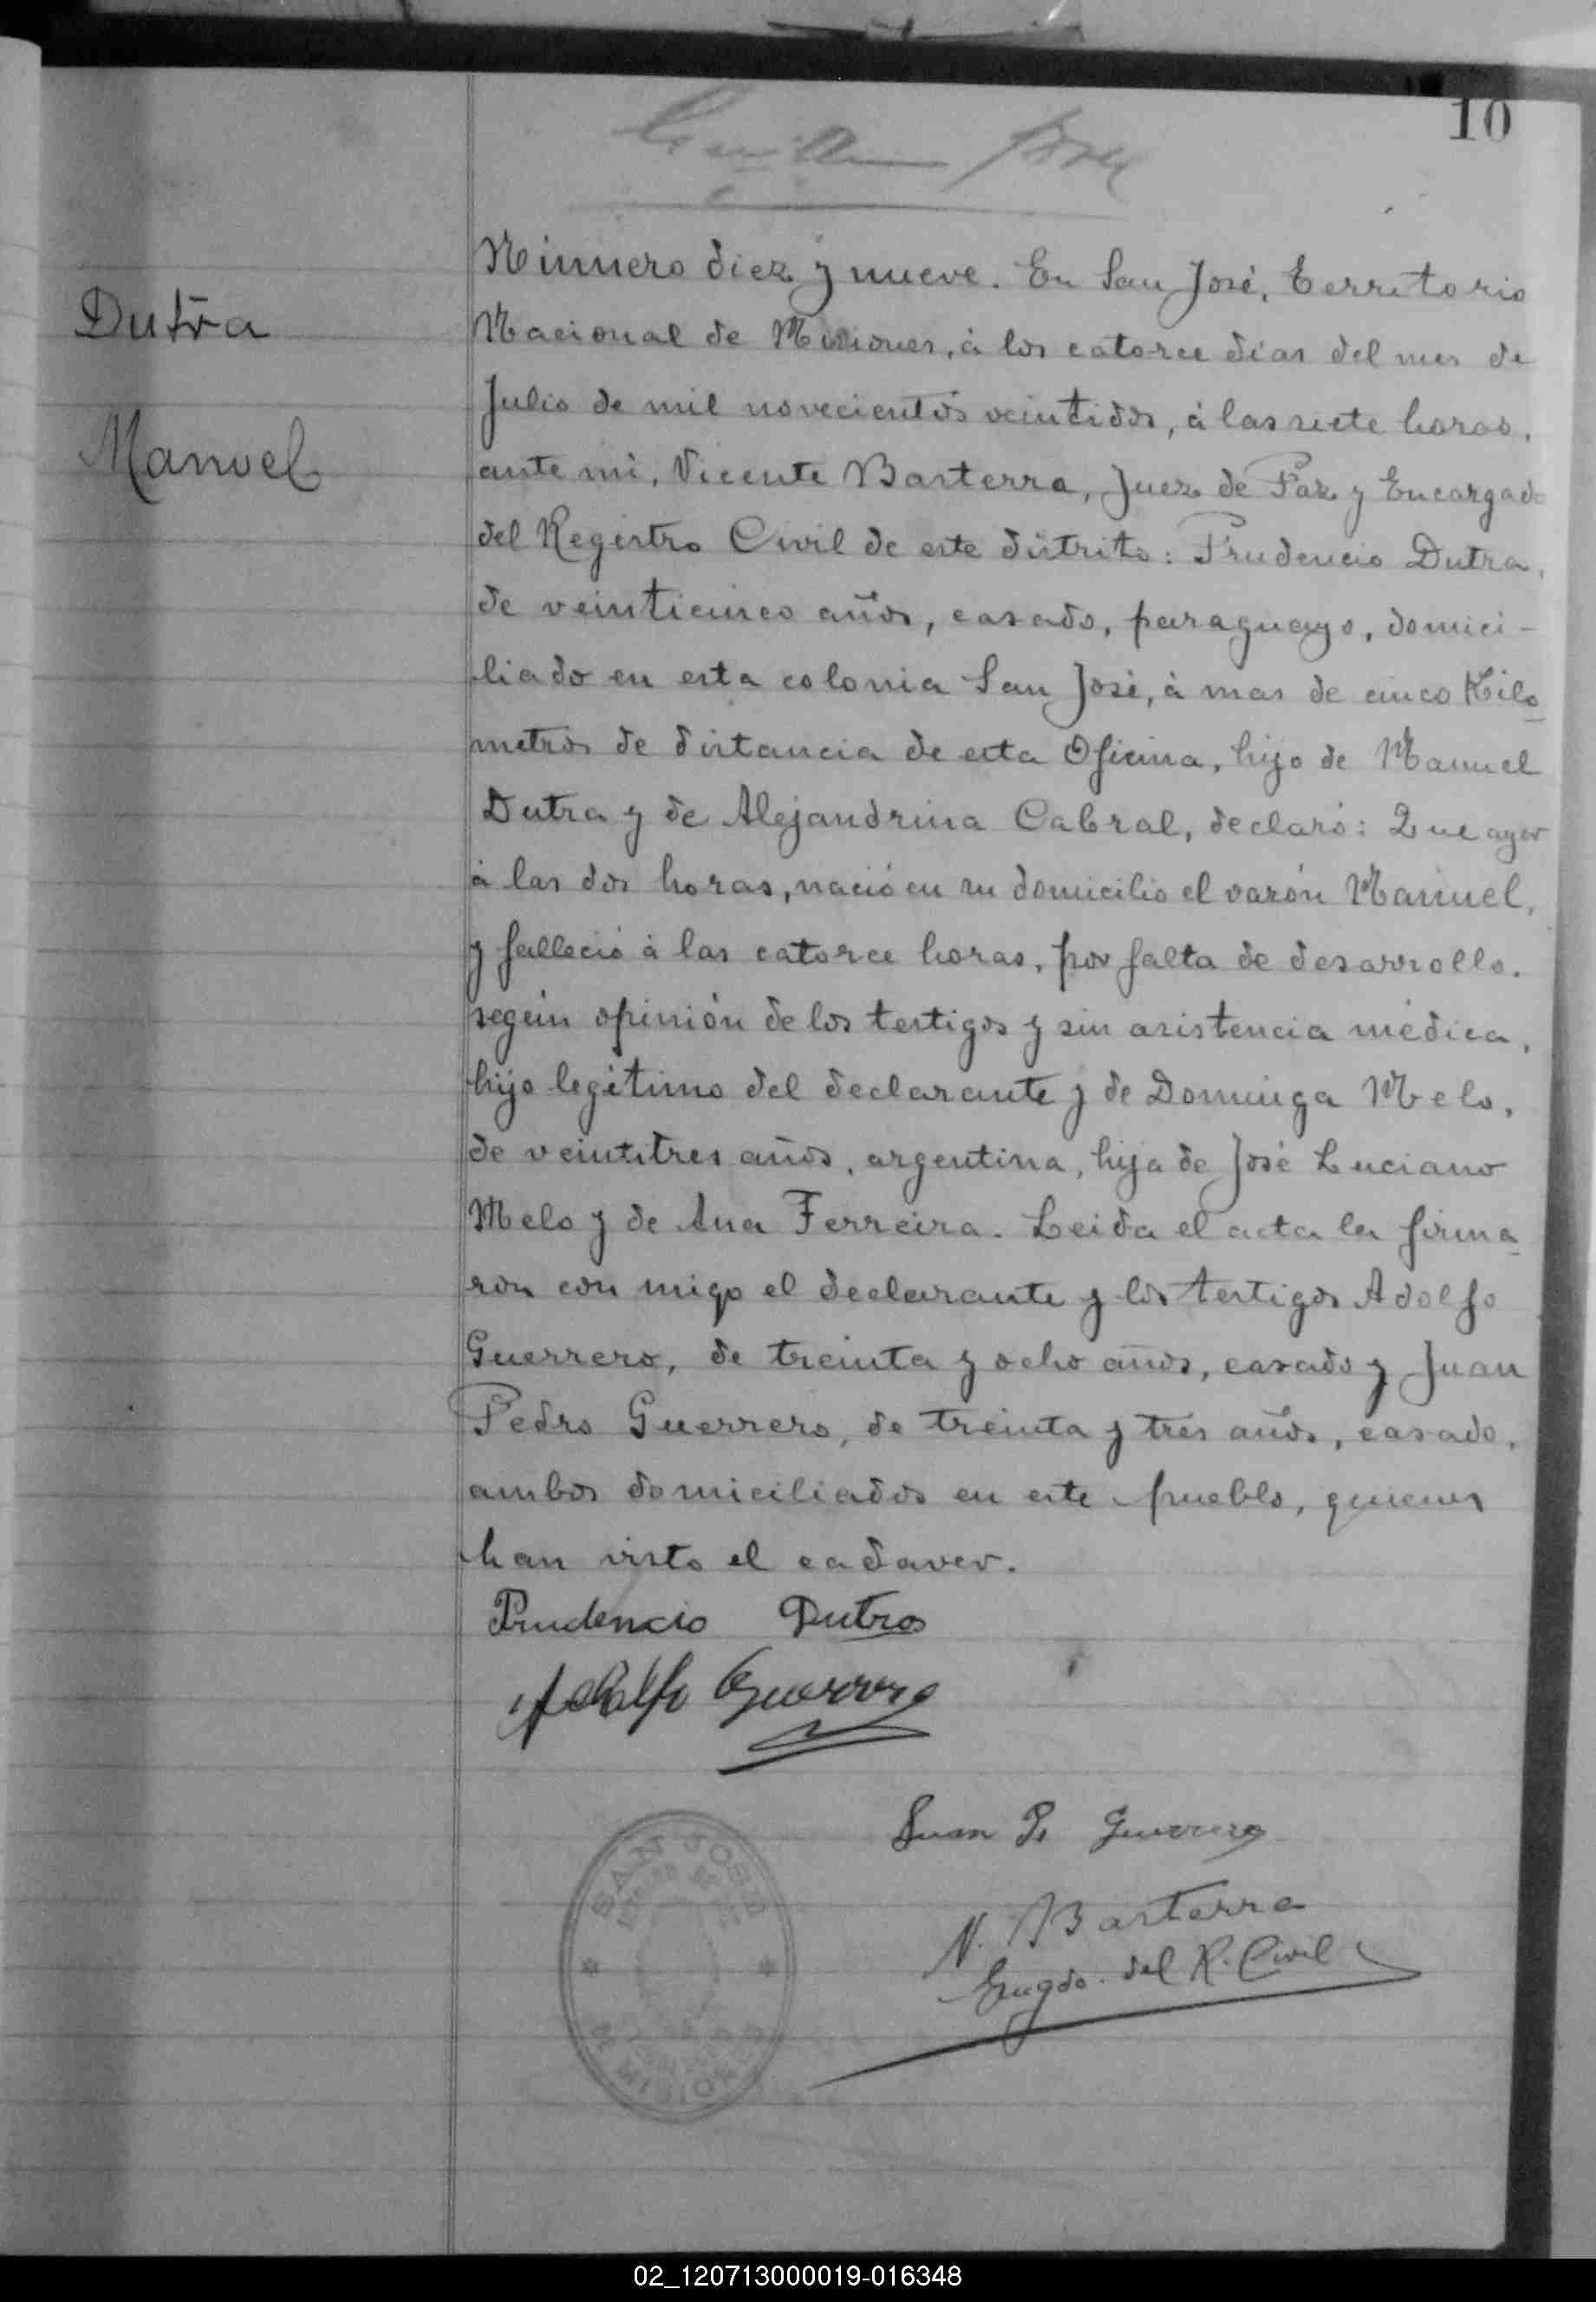 10
Dutra
Manuel
Número diez y nueve. En San José, Territorio
Nacional de Misiones, á los catorce dias del mes de
Julio de mil novecientos veintidos, á las siete horas,
ante mi, Vicente Barterra, Juez de Paz y Encargado
del Registro Civil de este distrito: Prudencio Dutra,
de veinticinco años, casado, paraguayo, domici-
liado en esta colonia San José, á mas de cinco Kilo
metros de distancia de esta Oficina, hijo de Manuel
Dutra y de Alejandrina Cabral, declaró: Que ayer
á las dos horas, nació en su domicilio el varón Manuel,
y falleció á las catorce horas, por falta de desarrollo,
según opinión de los testigos y sin asistencia médica,
hijo legítimo del declarante y de Dominga Melo,
de veintitres años, argentina, hija de José Luciano
Melo y de Ana Ferreira. Leida el acta la firma
ron con migo el declarante y los testigos Adolfo
Guerrero, de treinta y ocho años, casado y Juan
Pedro Guerrero, de treinta y tres años, casado,
ambos domiciliados en este pueblo, quienes
han visto el cadaver.
Prudencio Dutra
Adolfo Guerrero
Juan P. Guerrero
V. Barterra
Engdo. del R. Civil
SAN JOSÉ
MISIONES
02_120713000019-016348